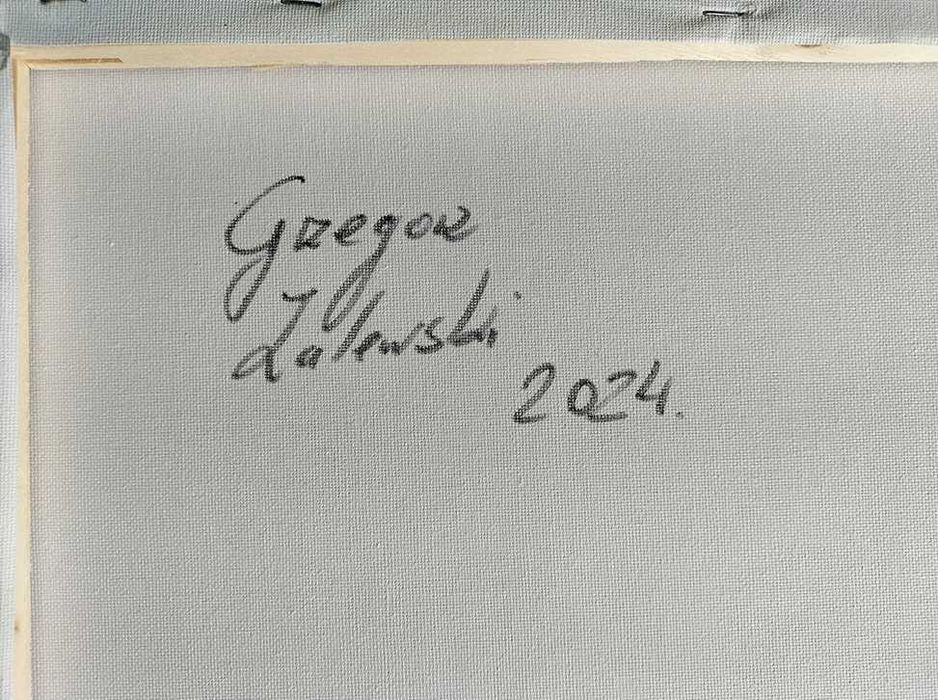 Grzegorz
Zalewski
2024.